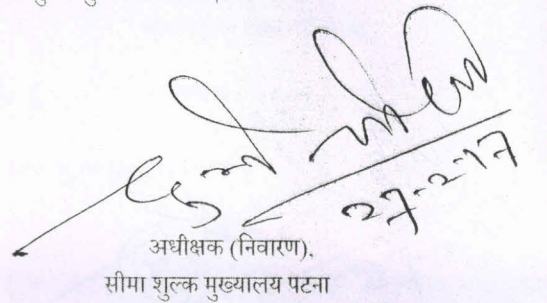 27-2-17
अधीक्षक (निवारण),
सीमा शुल्क मुख्यालय पटना